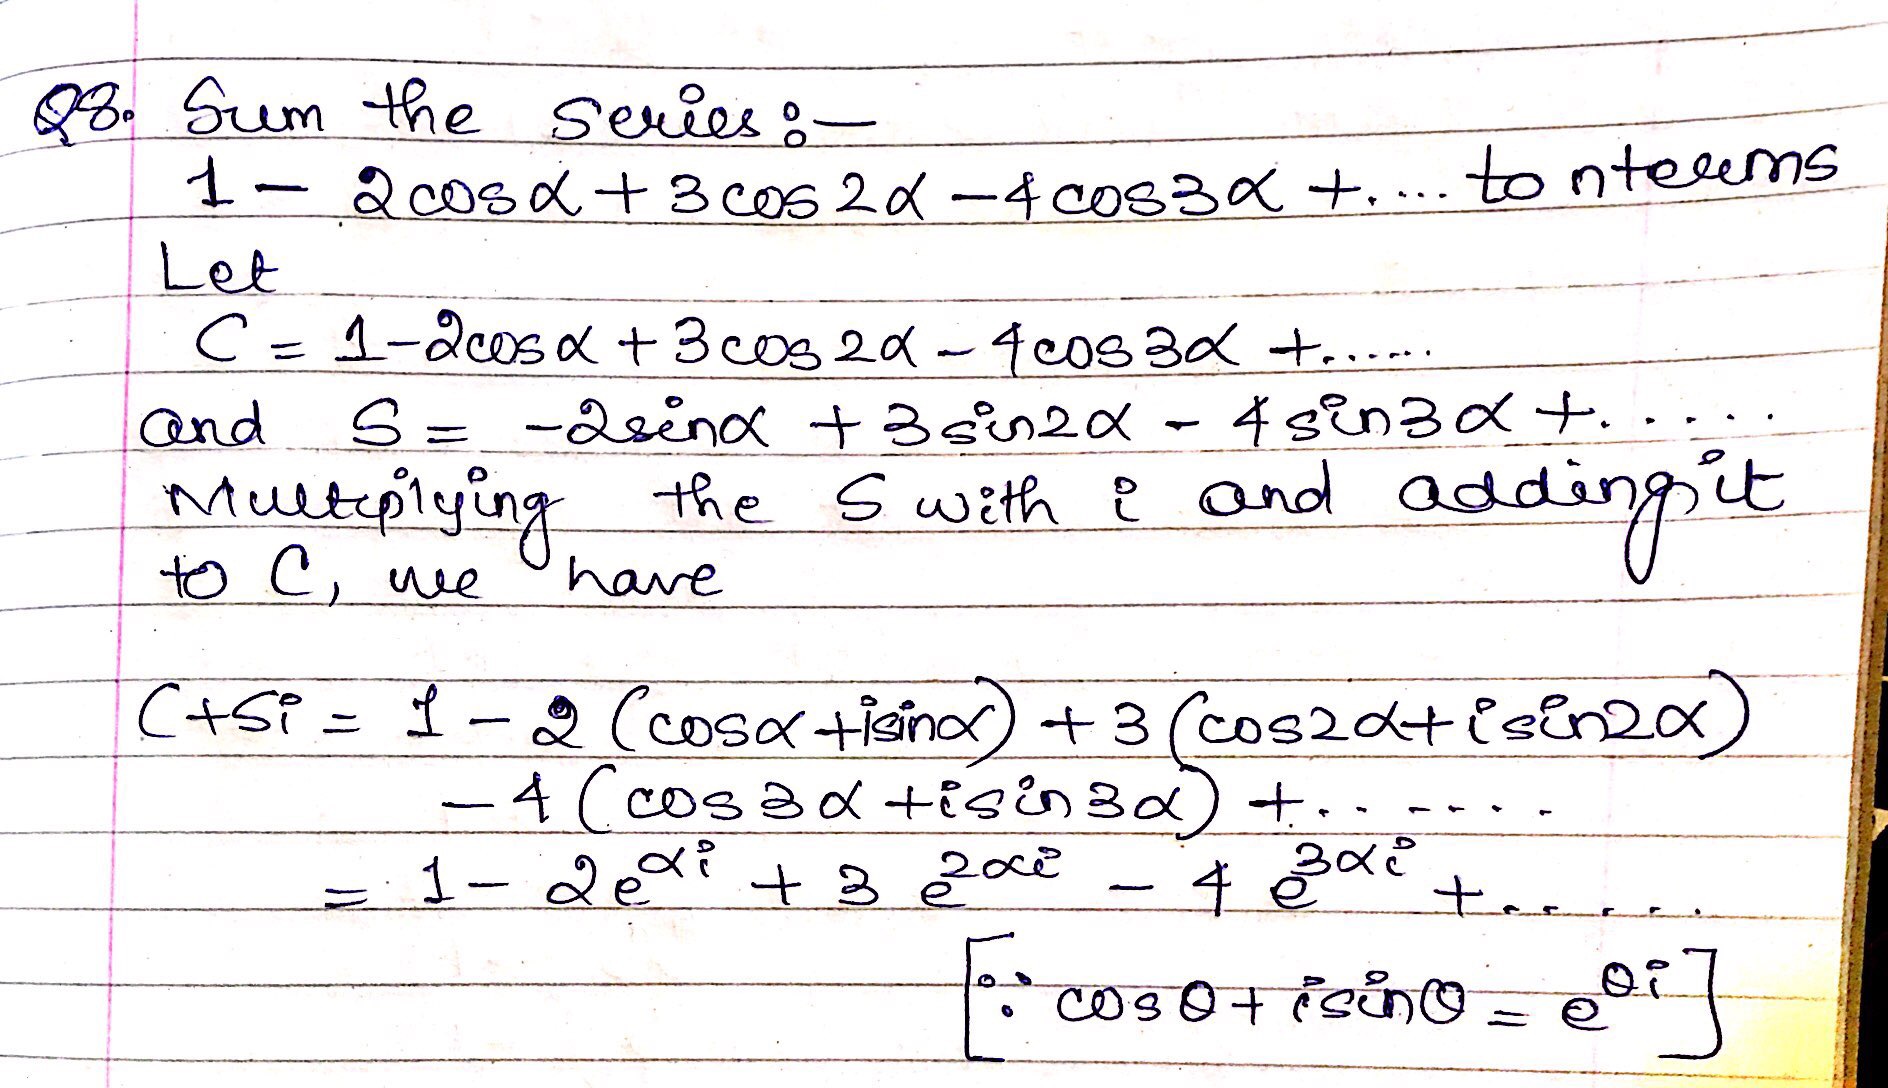 Q8. Sum the series :-
1 - 2cosα + 3cos2α - 4cos3α + .... to n terms
Let
C = 1 - 2cosα + 3cos2α - 4cos3α + ......
and S = -2sinα + 3sin2α - 4sin3α + .....
Multiplying the S with i and adding it
to C, we have
C+Si = 1 - 2(cosα + isinα) + 3(cos2α + isin2α)
- 4(cos3α + isin3α) + .......
= 1 - 2e^{αi} + 3e^{2αi} - 4e^{3αi} + .....
[∵ cosθ + isinθ = e^{θi}]